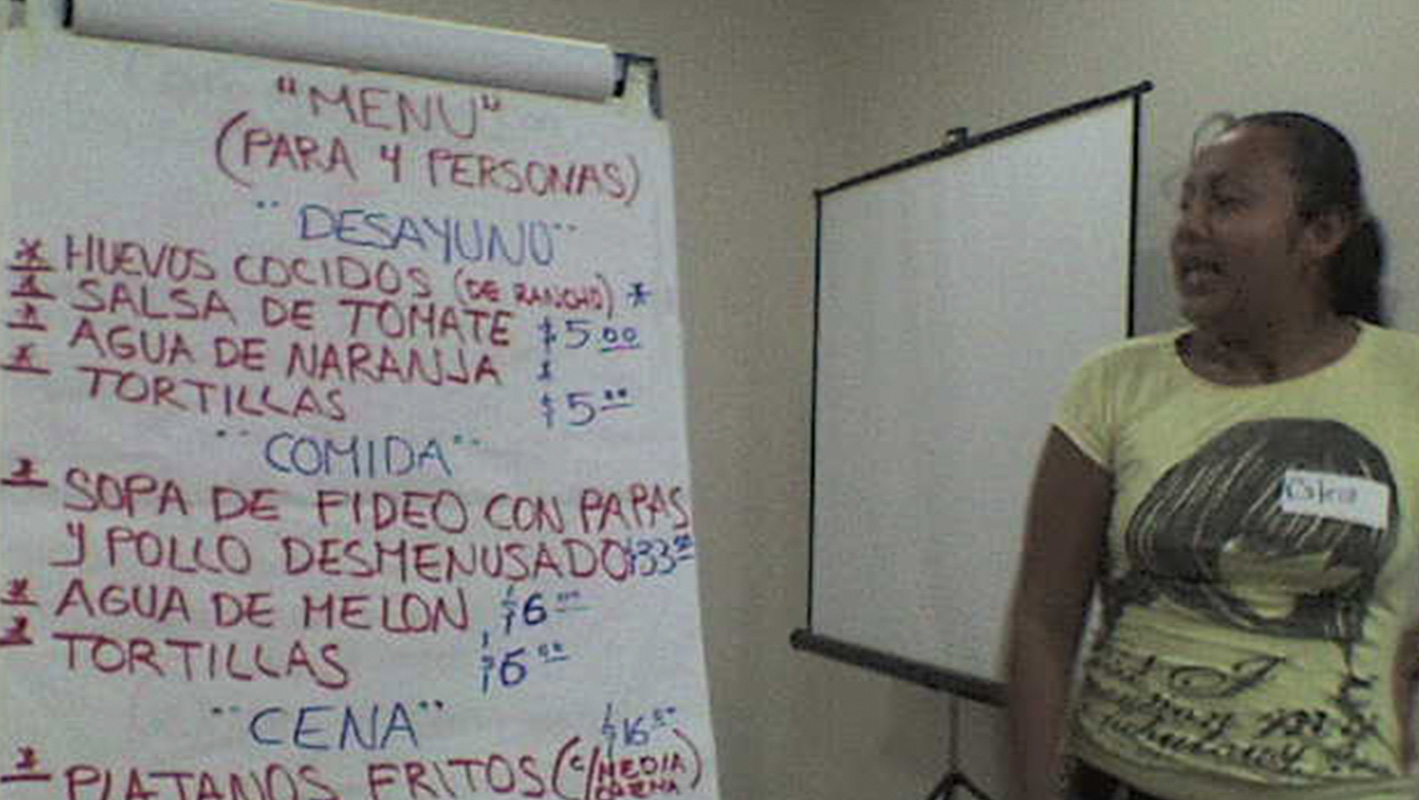 "MENU"
(PARA 4 PERSONAS)
"DESAYUNO"
* HUEVOS COCIDOS (DE RANCHO) *
* SALSA DE TOMATE $5.00
* AGUA DE NARANJA *
* TORTILLAS $5.00
"COMIDA"
* SOPA DE FIDEO CON PAPAS
Y POLLO DESMENUSADO $33.00
* AGUA DE MELON $6.00
* TORTILLAS $6.00
"CENA"
* PLATANOS FRITOS (C/MEDIA